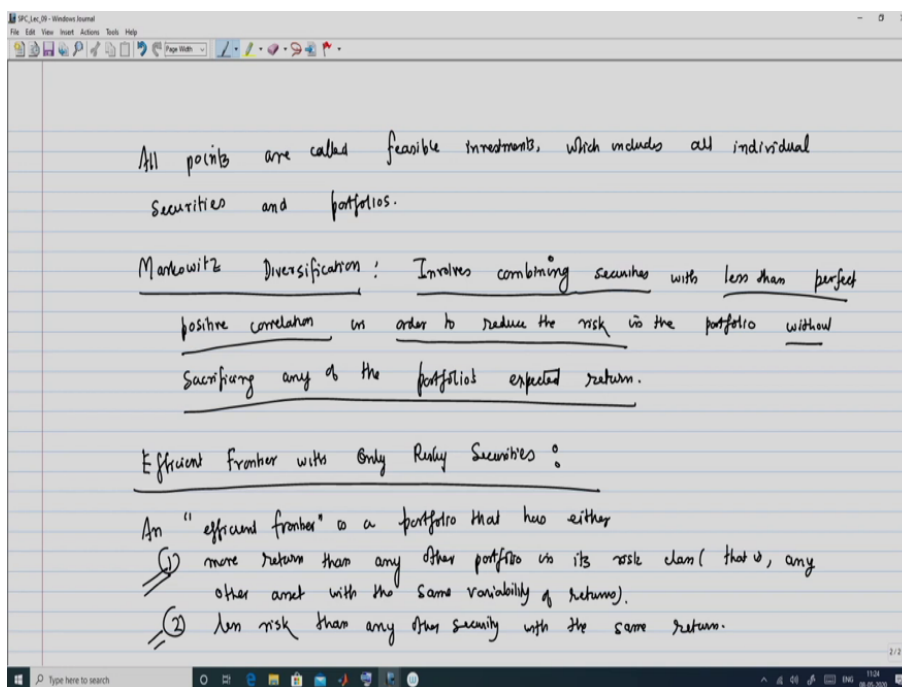 SPC_Lec_09 - Windows Journal
File Edit View Insert Actions Tools Help
Page Width
All points are called feasible investments, which includes all individual
securities and portfolios.
Markowitz Diversification : Involves combining securities with less than perfect
positive correlation in order to reduce the risk in the portfolio without
Sacrificing any of the portfolio's expected return.
Efficient Frontier with Only Risky Securities :
An "efficient frontier" is a portfolio that has either
(1) more return than any other portfolio in its risk class ( that is, any
other asset with the same variability of returns).
(2) less risk than any other security with the same return.
2/2
Type here to search
ENG
11:24
08-05-2020